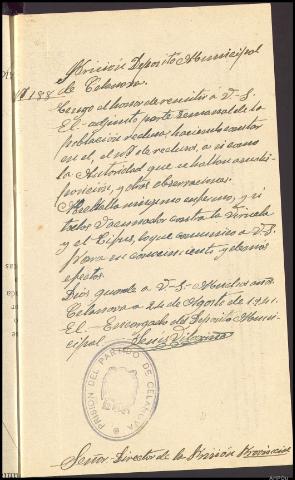 Prision Deposito Municipal
de Celanova.
Nº 188
Tengo el honor de remitir a V-S.
El adjunto parte semanal de la
poblacion reclusa, haciendo constar
en el, el nº de reclusos, a si como
la Autoridad que se hallan a su dis-
posicion, y otras observaciones.
No se halla ninguno enfermo, y si
todos Vacunados contra la Viruela
y el Tifus, lo que comunico a V-S.
para su conocimiento y demas
efectos.
Dios guarde a V-S- Muchos anos.
Celanova a 24 de Agosto de 1941.
El- Encargado del Deposito Muni-
cipal
PRISION DEL PARTIDO DE CELANOVA
Señor- Director de la Prision Provincial